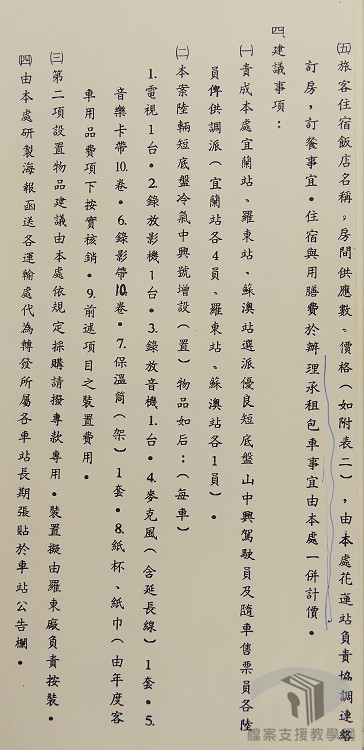 ㈤旅客住宿飯店名稱，房間供應數、價格（如附表二），由本處花蓮站負責協調連絡
訂房，訂餐事宜。住宿與用膳費於辦理承租包車事宜由本處一併計價。
四、建議事項：
㈠責成本處宜蘭站、羅東站、蘇澳站選派優良短底盤山中興駕駛員及隨車售票員各陸
員俾供調派（宜蘭站各4員、羅東站、蘇澳站各1員）。
㈡本案陸輛短底盤冷氣中興號增設（置）物品如后：（每車）
1.電視1台。2.錄放影機1台。3.錄放音機1台。4.麥克風（含延長線）1套。5.
音樂卡帶10.卷。6.錄影帶10.卷。7.保溫筒（架）1套。8.紙杯、紙巾（由年度客
車用品費項下按實核銷。9.前述項目之裝置費用。
㈢第二項設置物品建議由本處依規定採購請撥專款專用。裝置擬由羅東廠負責按裝。
㈣由本處研製海報函送各運輸處代為轉發所屬各車站長期張貼於車站公告欄。
檔案支援教學網